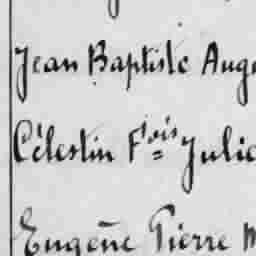 Jean Baptiste Aug
Célestin F.ois Julie
Eugène Pierre M